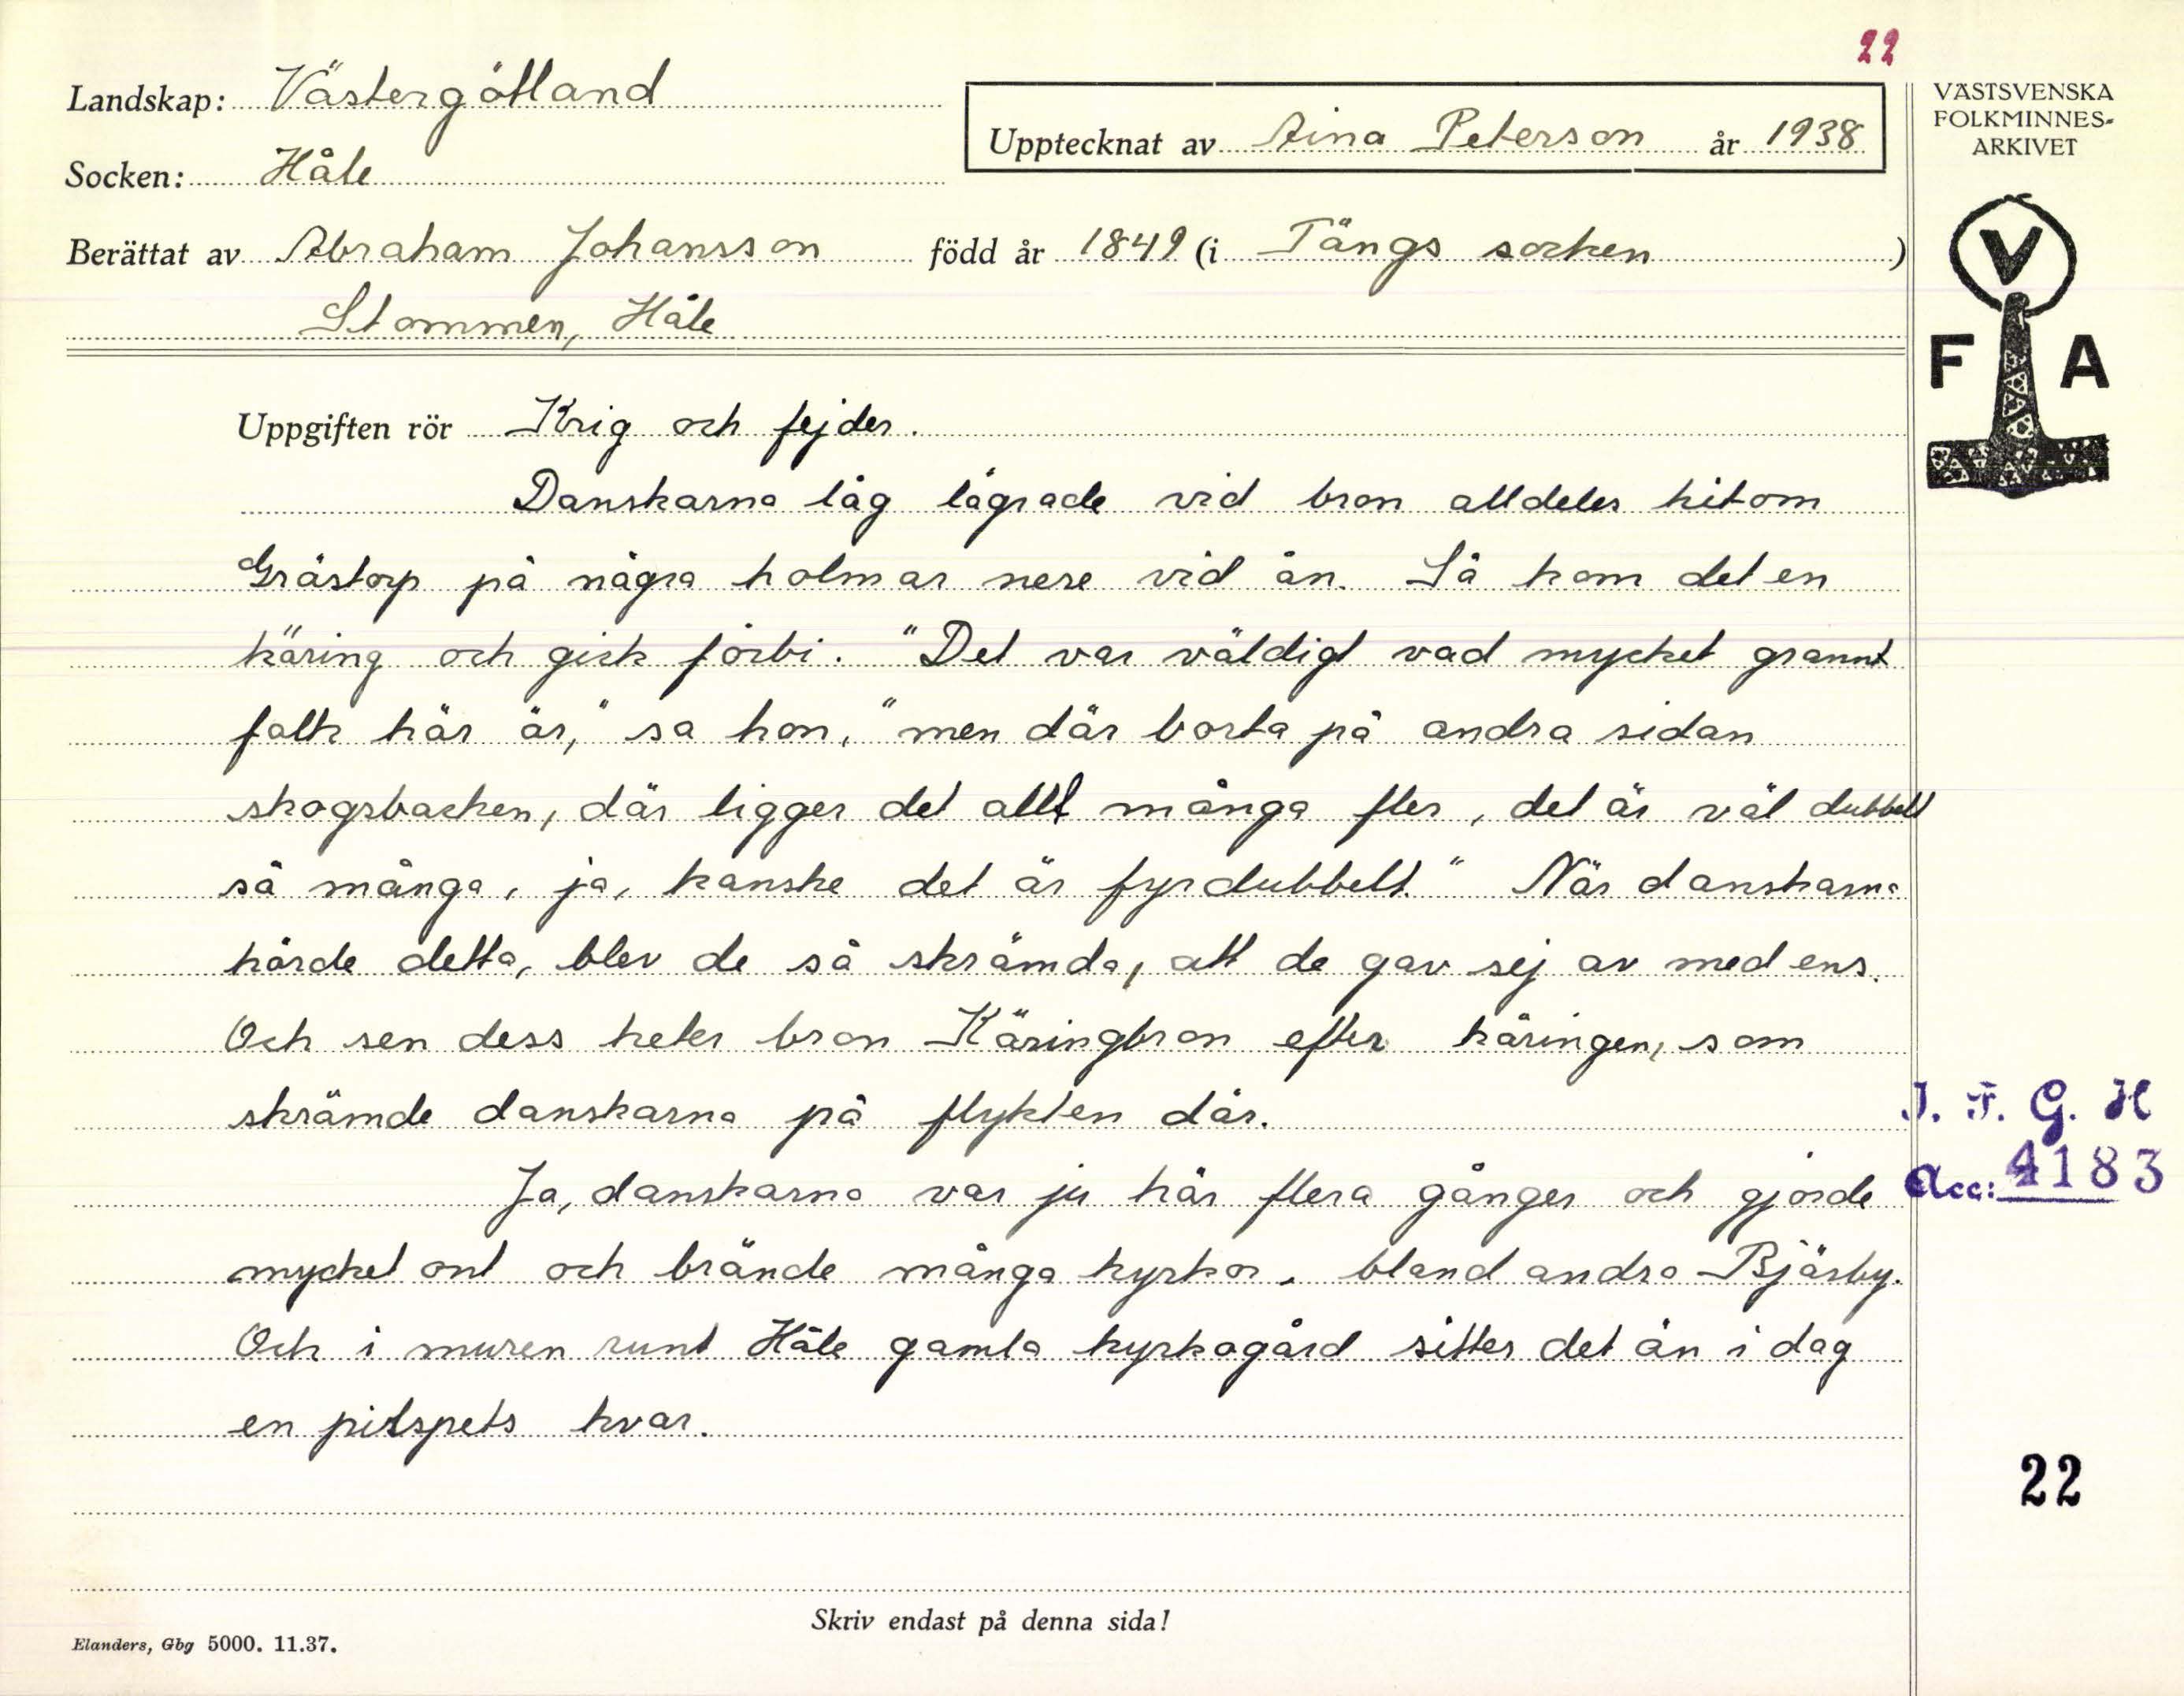 22
Landskap: Västergötland
Upptecknat av Aina Peterson år 1938
VÄSTSVENSKA
FOLKMINNES-
ARKIVET
Socken: Håle
Berättat av Abraham Johansson född år 1849 (i Tängs socken)
Stommen, Håle
V
F A
Uppgiften rör Krig och fejder.
Danskarna låg lägrade vid bron alldeles hitom
Grästorp på några holmar nere vid ån. Så kom det en
käring och gick förbi. "Det var väldigt vad mycket grannt
folk här är," sa hon, "men där borta på andra sidan
skogsbacken, där ligger det allt många fler, det är väl dubbelt
så många, ja, kanske det är fyrdubbelt." När danskarna
hörde detta, blev de så skrämda, att de gav sej av med ens.
Och sen dess heter bron Käringbron efter käringen, som
skrämde danskarna på flykten där.
J. F. G. H
Acc: 4183
Ja, danskarna var ju här flera gånger och gjorde
mycket ont och brände många kyrkor, bland andra Bjärby.
Och i muren runt Håle gamla kyrkogård sitter det än i dag
en pilspets kvar.
22
Skriv endast på denna sida!
Elanders, Gbg 5000. 11.37.